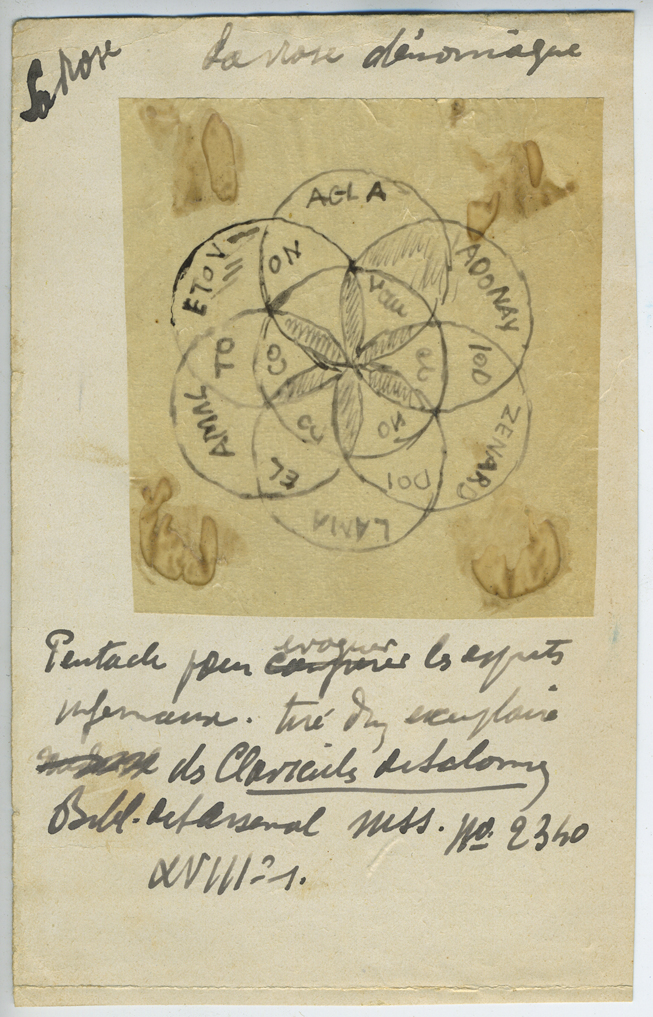 La rose
La rose démoniaque
AGLA
VADONAY
ZENARD
LAMA
AMAL
ETOV
ON
VAU
IOD
DOI
EL
TO
CO
NO
evoquer
Pentacle pour conjurer les esprits
infernaux. tiré d'un exemplaire
ds Clavicules de Salomon
Bibl. de l'arsenal mss. No. 2340
XVIIIe s.